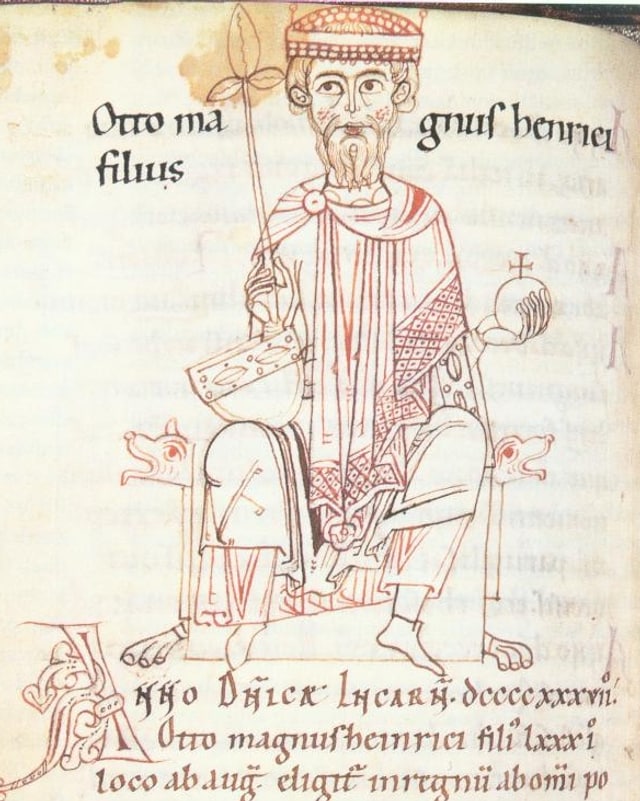 Otto ma gnus henrici
filius
Anno Dñicæ Incarñ. dccccxxxvii.
Otto magnus heinrici filiꝰ lxxxꝰi
loco ab aug̃. eligit̃ in regnũ ab om̃i po